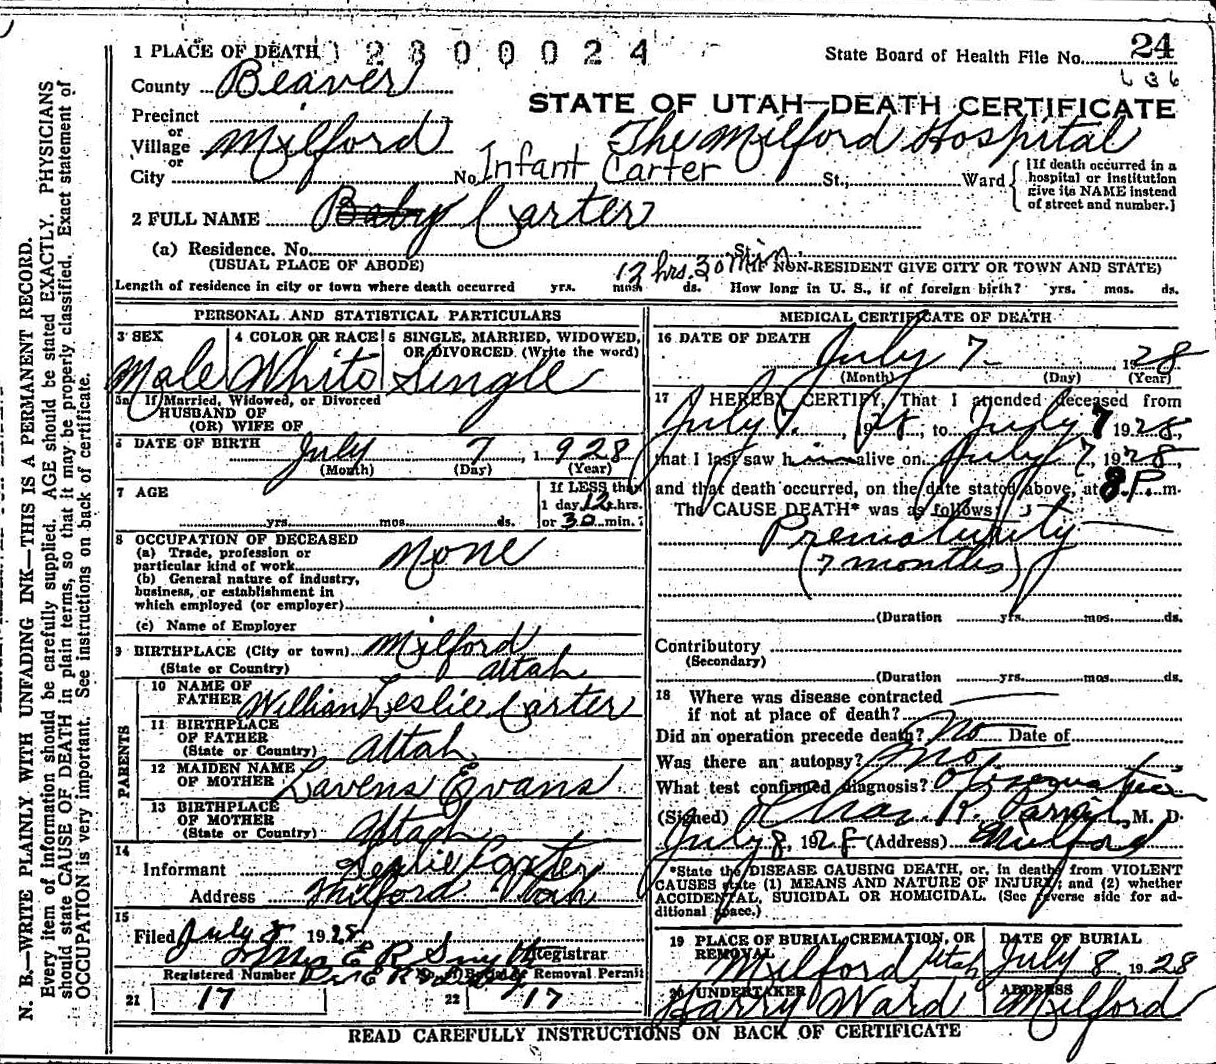 1 PLACE OF DEATH 2 3 0 0 0 2 4
State Board of Health File No. 24
636
County Beaver
STATE OF UTAH—DEATH CERTIFICATE
Precinct
or
Village Milford The Milford Hospital
or
City No. Infant Carter St., Ward
[If death occurred in a
hospital or institution
give its NAME instead
of street and number.]
2 FULL NAME Baby Carter
(a) Residence. No. St.,
(USUAL PLACE OF ABODE) (IF NON-RESIDENT GIVE CITY OR TOWN AND STATE)
12 hrs. 30 min.
Length of residence in city or town where death occurred yrs. mos. ds. How long in U. S., if of foreign birth? yrs. mos. ds.
PERSONAL AND STATISTICAL PARTICULARS
3 SEX 4 COLOR OR RACE 5 SINGLE, MARRIED, WIDOWED,
OR DIVORCED (Write the word)
Male White Single
5a If Married, Widowed, or Divorced
HUSBAND OF
(OR) WIFE OF
6 DATE OF BIRTH July 7, 1928
(Month) (Day) (Year)
7 AGE If LESS than
1 day, 12 hrs.
yrs. mos. ds. or 30 min.?
8 OCCUPATION OF DECEASED
(a) Trade, profession or
particular kind of work None
(b) General nature of industry,
business, or establishment in
which employed (or employer)
(c) Name of Employer
9 BIRTHPLACE (City or town) Milford
(State or Country) Utah
PARENTS
10 NAME OF
FATHER William Leslie Carter
11 BIRTHPLACE
OF FATHER
(State or Country) Utah
12 MAIDEN NAME
OF MOTHER Lavens Evans
13 BIRTHPLACE
OF MOTHER
(State or Country) Utah
14
Informant Leslie Carter
Address Milford Utah
15
Filed July 8 1928
Mrs E R Smyth Registrar
Registered Number of Burial or Removal Permit
21 17 22 17
MEDICAL CERTIFICATE OF DEATH
16 DATE OF DEATH
July 7 1928
(Month) (Day) (Year)
17 I HEREBY CERTIFY, That I attended deceased from
July 7, 1928, to July 7 1928,
that I last saw him alive on July 7, 1928,
and that death occurred, on the date stated above, at 8 P. m.
The CAUSE DEATH* was as follows:
Prematurity
(7 months)
(Duration yrs. mos. ds.
Contributory
(Secondary)
(Duration yrs. mos. ds.
18 Where was disease contracted
if not at place of death?
Did an operation precede death? No Date of
Was there an autopsy? No
What test confirmed diagnosis? Observation
(Signed) Chas R. M. D.
July 8, 1928 (Address) Milford
*State the DISEASE CAUSING DEATH, or, in deaths from VIOLENT
CAUSES state (1) MEANS AND NATURE OF INJURY; and (2) whether
ACCIDENTAL, SUICIDAL OR HOMICIDAL. (See reverse side for ad-
ditional space.)
19 PLACE OF BURIAL, CREMATION, OR
REMOVAL
DATE OF BURIAL
Milford Utah July 8 1928
20 UNDERTAKER ADDRESS
Harry Ward Milford
READ CAREFULLY INSTRUCTIONS ON BACK OF CERTIFICATE
N. B.—WRITE PLAINLY WITH UNFADING INK—THIS IS A PERMANENT RECORD.
Every item of information should be carefully supplied. AGE should be stated EXACTLY. PHYSICIANS
should state CAUSE OF DEATH in plain terms, so that it may be properly classified. Exact statement of
OCCUPATION is very important. See instructions on back of certificate.